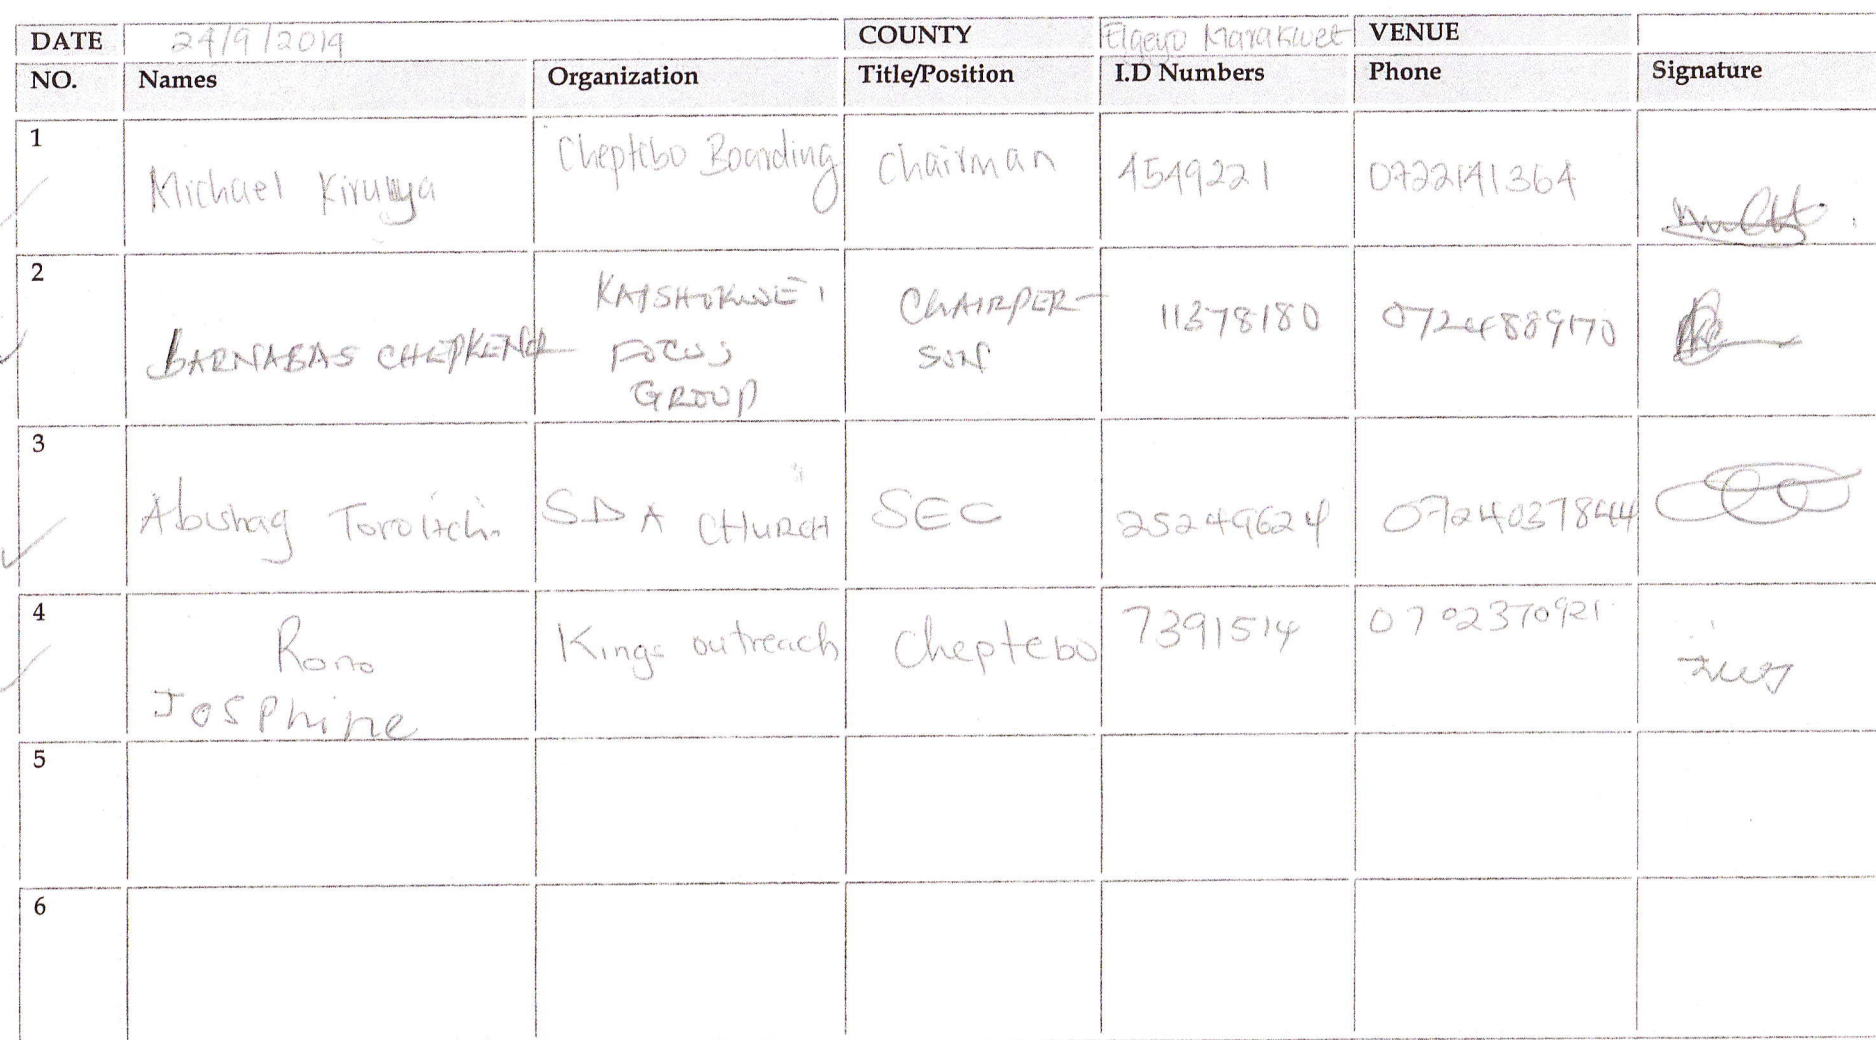 DATE 24/9/2019 COUNTY Elgeyo Marakwet VENUE
NO. Names Organization Title/Position I.D Numbers Phone Signature
1 Michael Kirunya Cheptebo Boarding Chairman 4549221 0722141364
2 BARNABAS CHEPKENER KAPSHOKWEI FOCUS GROUP CHAIRPER- SON 11378180 0724889170
3 Abishag Toroitich SDA CHURCH SEC 25249624 0724037844
4 Rono Josphine Kings outreach Cheptebo 7391514 0702370921
5
6